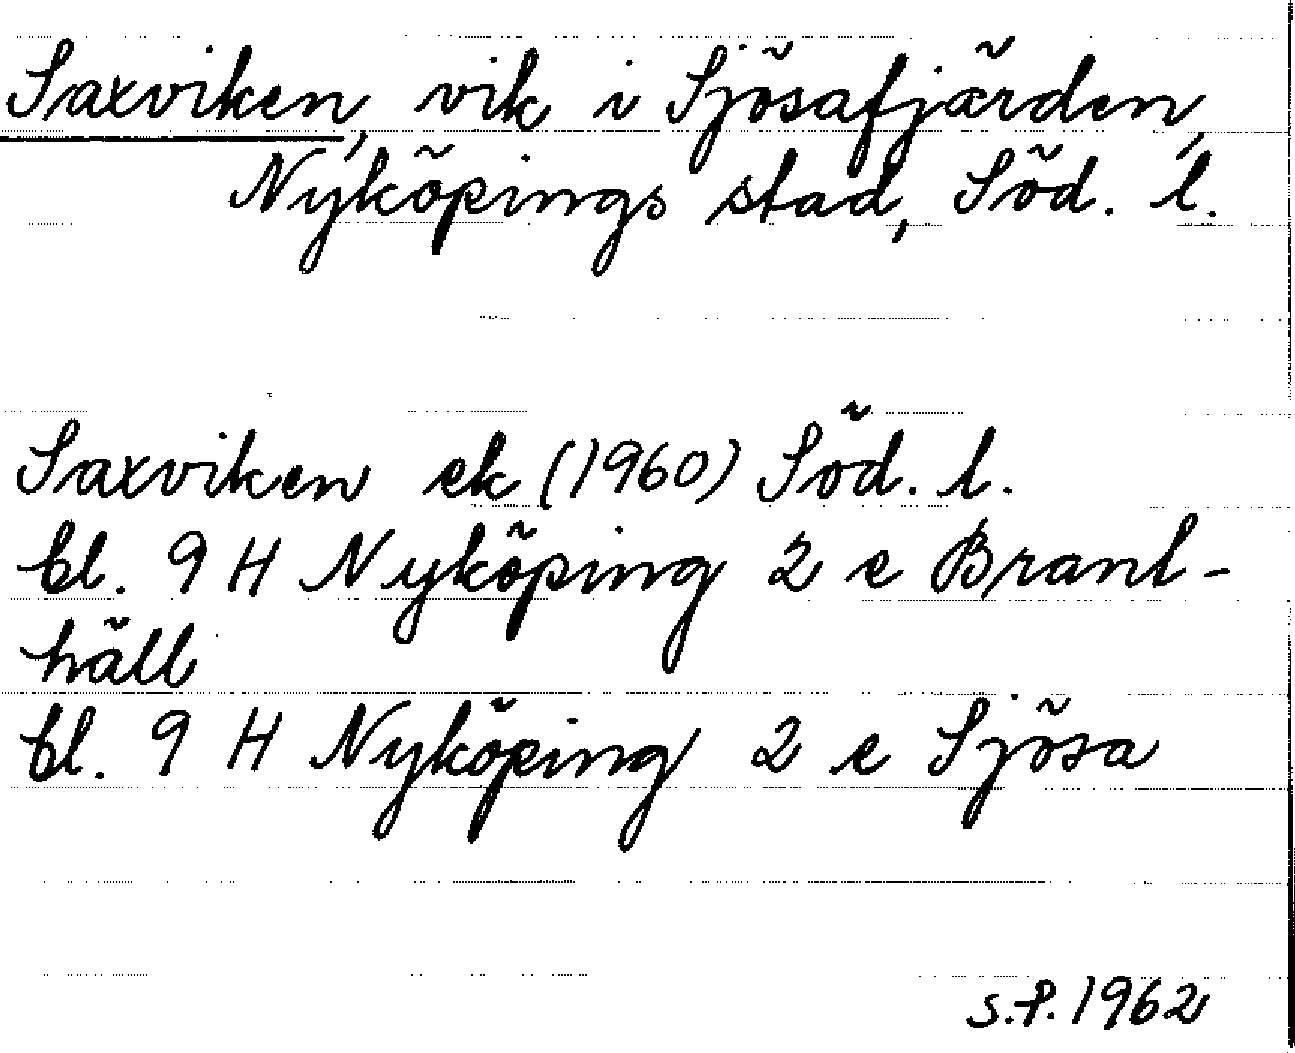 Saxviken, vik i Sjösafjärden,
Nyköpings stad, Söd. l.
Saxviken ek (1960) Söd. l.
bl. 9 H Nyköping 2 e Brant-
häll
bl. 9 H Nyköping 2 e Sjösa
S.P. 1962